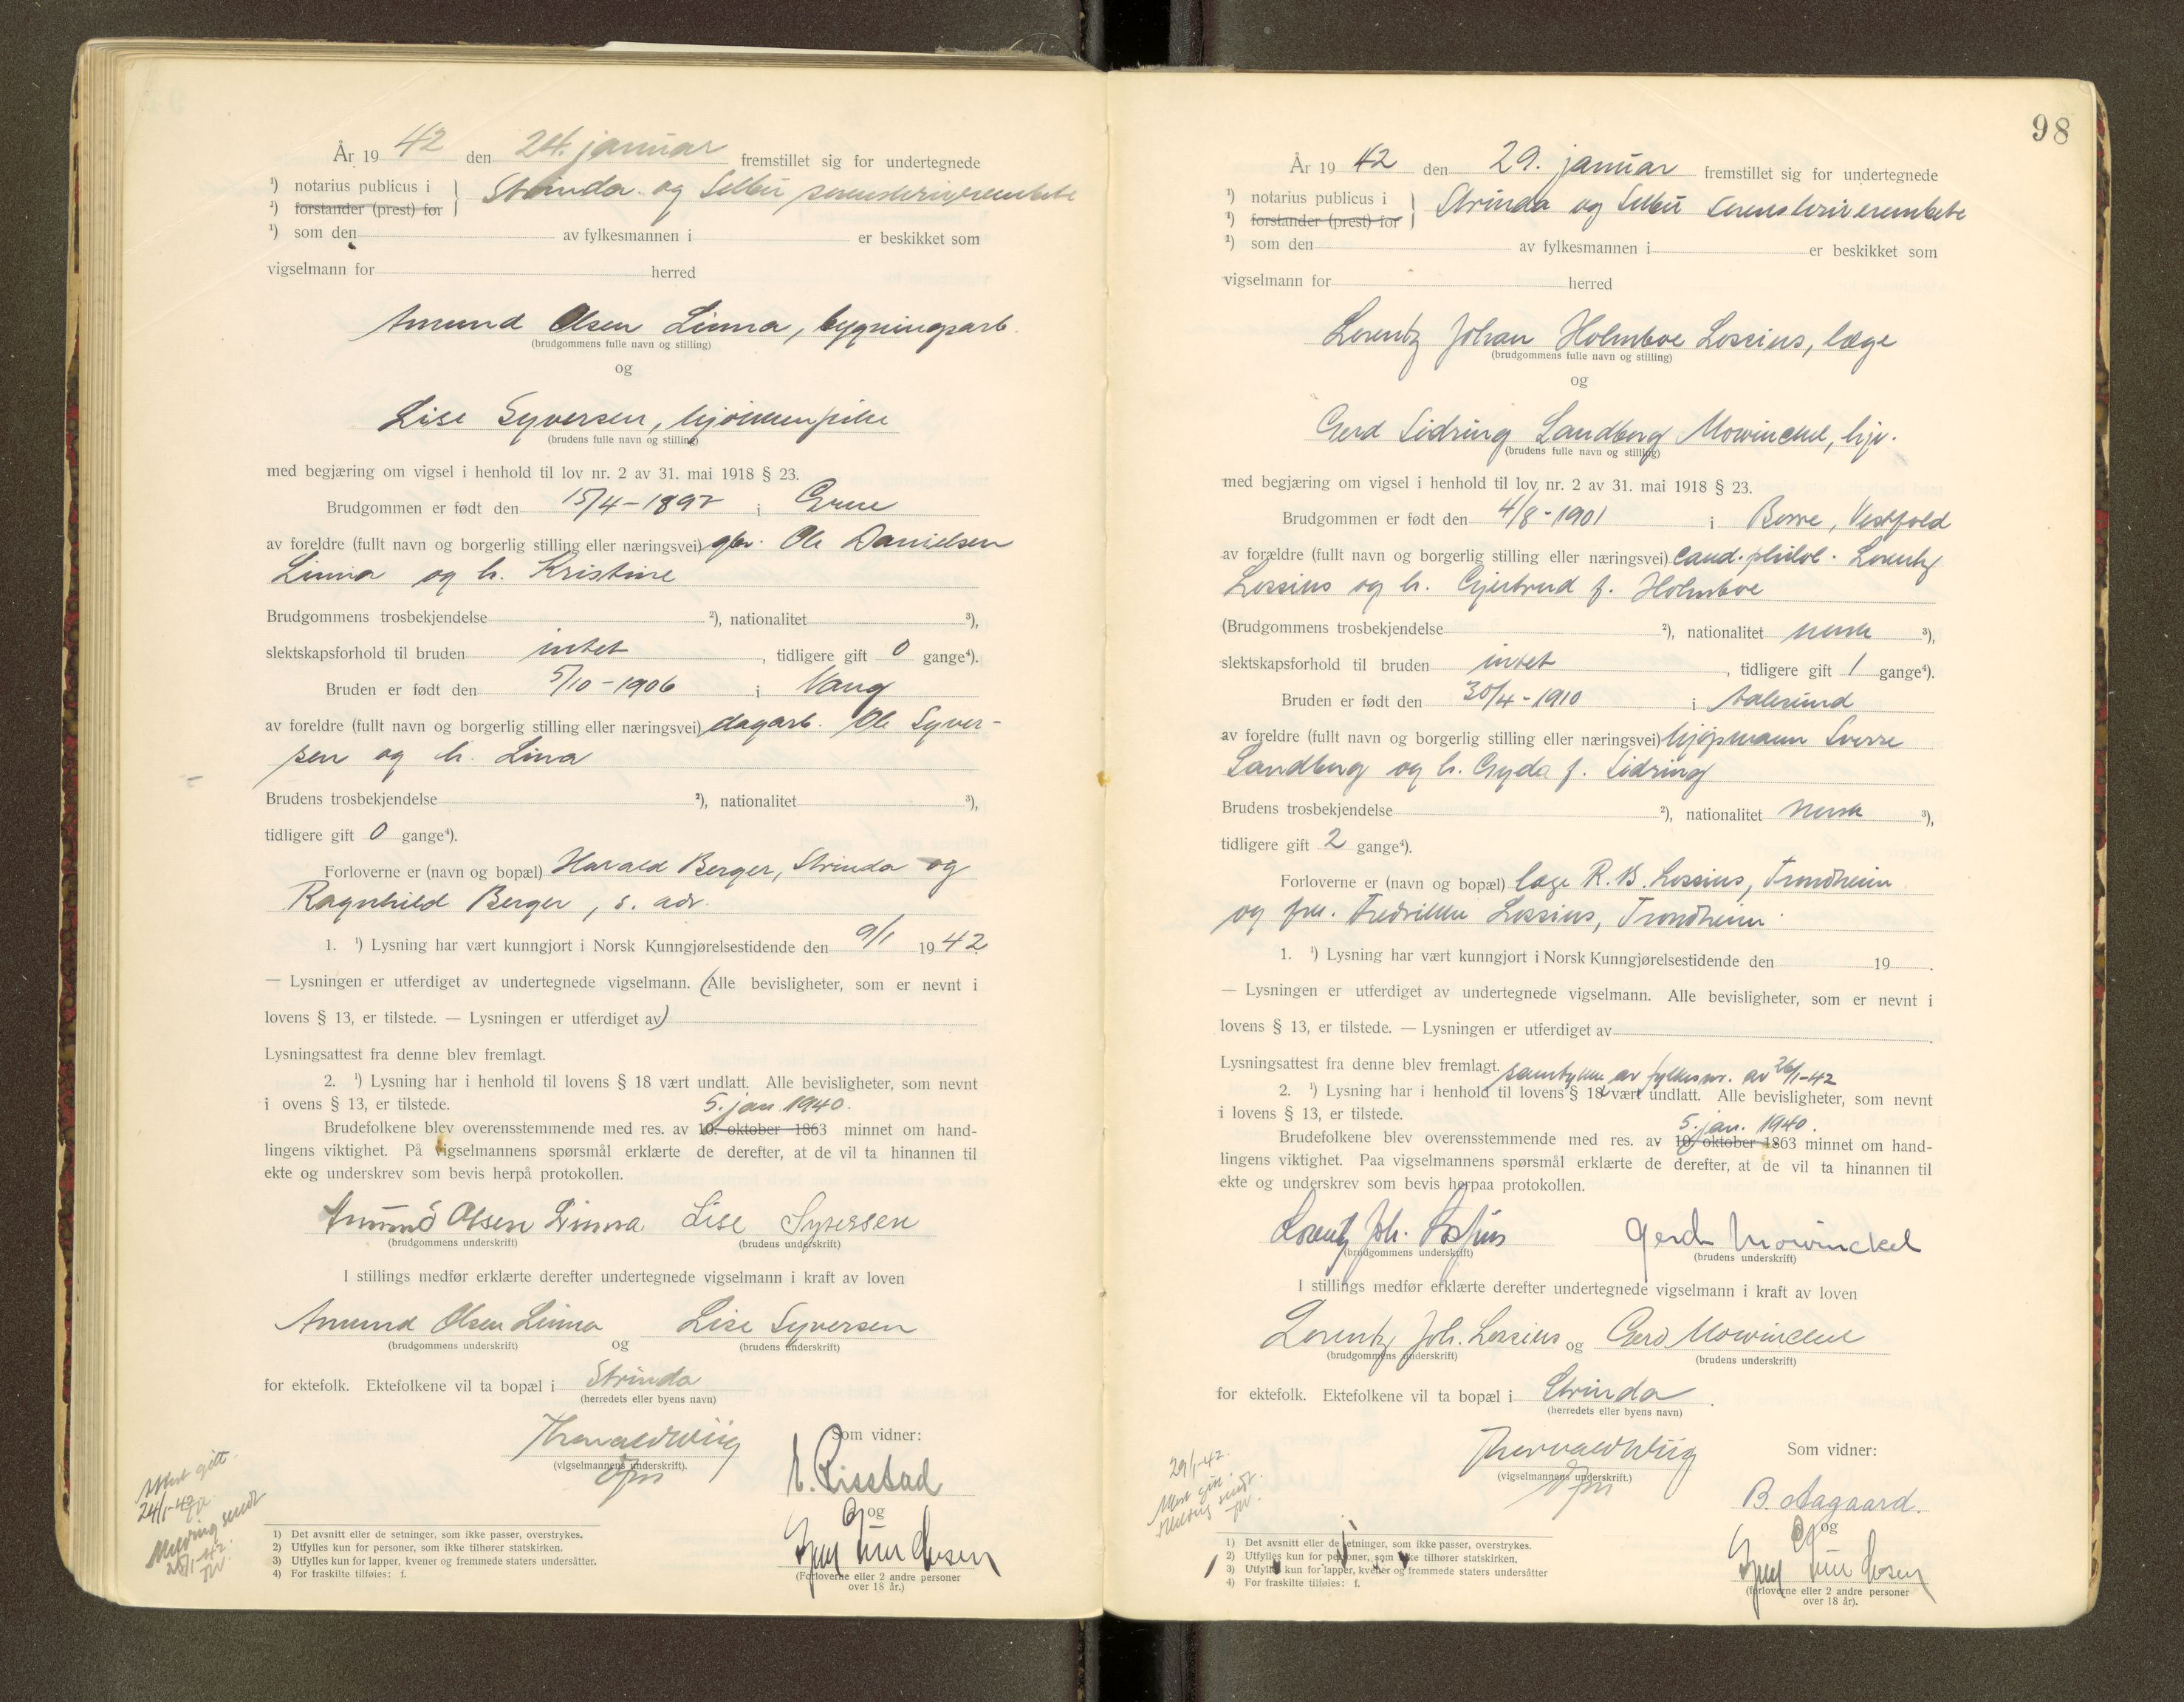 År 19 42 den 24. januar fremstillet sig for undertegnede
¹) notarius publicus i } Strinda og Selbu sorenskriverembete
¹) forstander (prest) for
¹) som den av fylkesmannen i er beskikket som
vigselmann for herred
Amund Olsen Linna, bygningsarb.
(brudgommens fulle navn og stilling)
og
Lise Syversen, kjøkkenpike
(brudens fulle navn og stilling)
med begjæring om vigsel i henhold til lov nr. 2 av 31. mai 1918 § 23.
Brudgommen er født den 15/4-1892 i Grue
av foreldre (fullt navn og borgerlig stilling eller næringsvei) gbr. Ole Danielsen
Linna og h. Kristine
Brudgommens trosbekjendelse ²), nationalitet ³),
slektskapsforhold til bruden intet, tidligere gift 0 gange⁴).
Bruden er født den 5/10-1906 i Vang
av foreldre (fullt navn og borgerlig stilling eller næringsvei) dagarb. Ole Syver-
sen og h. Lina
Brudens trosbekjendelse ²), nationalitet ³),
tidligere gift 0 gange⁴).
Forloverne er (navn og bopæl) Harald Berger, Strinda og
Ragnhild Berger, s. adr.
1. ¹) Lysning har vært kunngjort i Norsk Kunngjørelsestidende den 9/1 19 42.
— Lysningen er utferdiget av undertegnede vigselmann. (Alle bevisligheter, som er nevnt i
lovens § 13, er tilstede. — Lysningen er utferdiget av)
Lysningsattest fra denne blev fremlagt.
2. ¹) Lysning har i henhold til lovens § 18 vært undlatt. Alle bevisligheter, som nevnt
i ovens § 13, er tilstede.
5. jan. 1940.
Brudefolkene blev overensstemmende med res. av 10. oktober 1863 minnet om hand-
lingens viktighet. På vigselmannens spørsmål erklærte de derefter, at de vil ta hinannen til
ekte og underskrev som bevis herpå protokollen.
Amund Olsen Linna Lise Syversen
(brudgommens underskrift) (brudens underskrift)
I stillings medfør erklærte derefter undertegnede vigselmann i kraft av loven
Amund Olsen Linna og Lise Syversen
(brudgommens underskrift) (brudens underskrift)
for ektefolk. Ektefolkene vil ta bopæl i Strinda
(herredets eller byens navn)
Thorvald Wiig
(vigselmannens underskrift).
Som vidner:
Lisstad
og
(Forloverne eller 2 andre personer
over 18 år.)
Attest gitt.
24/1-42
TW.
Melding sendt
28/1-42.
TW.
1) Det avsnitt eller de setninger, som ikke passer, overstrykes.
2) Utfylles kun for personer, som ikke tilhører statskirken.
3) Utfylles kun for lapper, kvener og fremmede staters undersåtter.
4) For fraskilte tilføies: f.
98
År 19 42 den 29. januar fremstillet sig for undertegnede
¹) notarius publicus i } Strinda og Selbu sorenskriverembete
¹) forstander (prest) for
¹) som den av fylkesmannen i er beskikket som
vigselmann for herred
Lorentz Johan Holmboe Lossius, læge
(brudgommens fulle navn og stilling)
og
Gerd Sidring Sandberg Mowinckel, hjv.
(brudens fulle navn og stilling)
med begjæring om vigsel i henhold til lov nr. 2 av 31. mai 1918 § 23.
Brudgommen er født den 4/8-1901 i Borre, Vestfold
av forældre (fullt navn og borgerlig stilling eller næringsvei) cand. philol. Lorentz
Lossius og h. Gjertrud f. Holmboe
(Brudgommens trosbekjendelse ²), nationalitet norsk ³),
slektskapsforhold til bruden intet, tidligere gift 1 gange⁴).
Bruden er født den 30/4-1910 i Aalesund
av foreldre (fullt navn og borgerlig stilling eller næringsvei) kjøpmann Sverre
Sandberg og h. Gyda f. Sidring
Brudens trosbekjendelse ²), nationalitet norsk ³),
tidligere gift 2 gange⁴).
Forloverne er (navn og bopæl) læge R. B. Lossius, Trondheim
og frk. Fredrikke Lossius, Trondheim.
1. ¹) Lysning har vært kunngjort i Norsk Kunngjørelsestidende den 19 .
— Lysningen er utferdiget av undertegnede vigselmann. Alle bevisligheter, som er nevnt i
lovens § 13, er tilstede. — Lysningen er utferdiget av .
Lysningsattest fra denne blev fremlagt. samtykke av fylkesm. av 26/1-42
2. ¹) Lysning har i henhold til lovens § 18 vært undlatt. Alle bevisligheter, som nevnt
i lovens § 13, er tilstede.
5. jan. 1940.
Brudefolkene blev overensstemmende med res. av 10. oktober 1863 minnet om hand-
lingens viktighet. Paa vigselmannens spørsmål erklærte de derefter, at de vil ta hinannen til
ekte og underskrev som bevis herpaa protokollen.
Lorentz Joh. Lossius Gerd Mowinckel
(brudgommens underskrift) (brudens underskrift)
I stillings medfør erklærte derefter undertegnede vigselmann i kraft av loven
Lorentz Joh. Lossius og Gerd Mowinckel
(brudgommens underskrift) (brudens underskrift)
for ektefolk. Ektefolkene vil ta bopæl i Strinda.
(herredets eller byens navn)
Thorvald Wiig
(vigselmannens underskrift.)
Som vidner:
B. Aagaard.
og
(forloverne eller 2 andre personer
over 18 år).
29/1-42.
Attest gitt.
Melding sendt.
TW.
1) Det avsnitt eller de setninger, som ikke passer, overstrykes.
2) Utfylles kun for personer, som ikke tilhører statskirken.
3) Utfylles kun for lapper, kvener og fremmede staters undersåtter
4) For fraskilte tilføies: f.